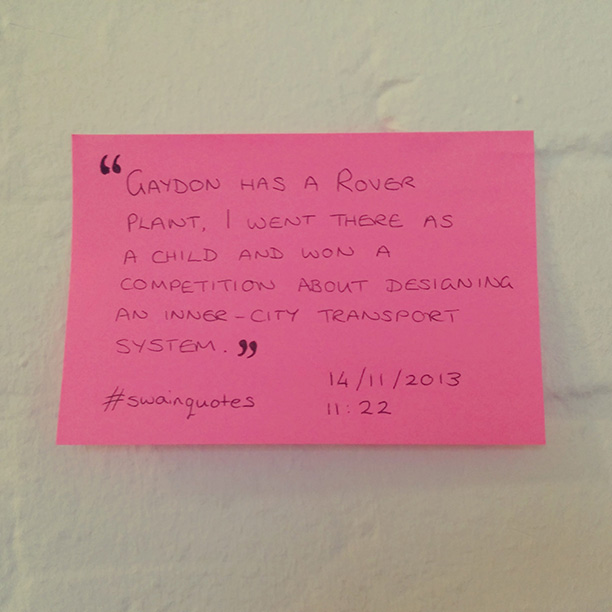 “GAYDON HAS A ROVER
PLANT, I WENT THERE AS
A CHILD AND WON A
COMPETITION ABOUT DESIGNING
AN INNER-CITY TRANSPORT
SYSTEM.”
14/11/2013
#swainquotes
11:22